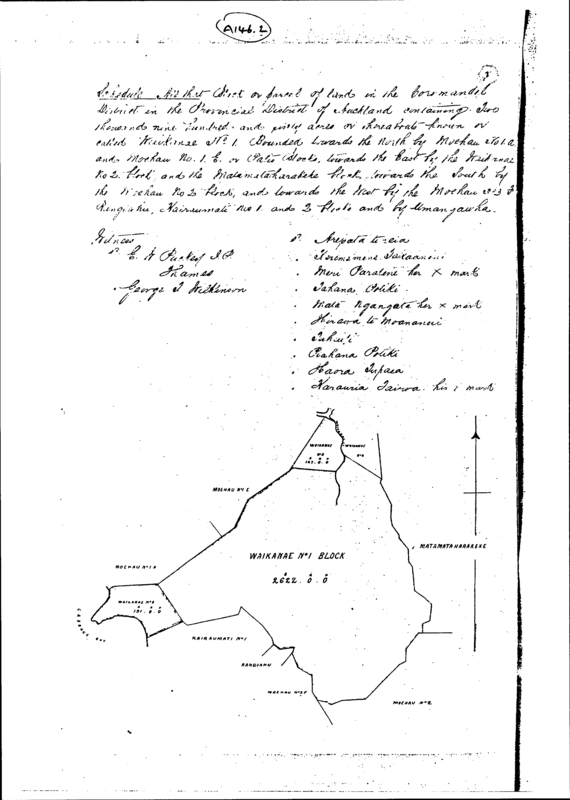 A146.2
Schedule All that Block or parcel of lands in the Coromandel
District in the Provincial District of Auckland containing Two
thousand nine hundred and acres or thereabouts known or
called Waikanae No 1. Bounded towards the North by Moehau No 1.a
and Moehau No. 1. E. or Blocks, towards the East by the Waikanae
No 2 block and the Matamataharakeke block, towards the South by
the Moehau No 2 block, and towards the West by the Moehau No 3 F
Rangiahu, Kairaumati No 1. and 2 blocks and by Umangawha.
Witness
E W Puckey J.P.
Thames
George T Wilkinson
Arepata te
Meri Paratene her X mark
Tahana Potiki
Mata Ngangata her X mark
Hirawa te Moananui
Pitiki
Haora Tupaea
Karauria his x mark
WAIKANAE
No 3
147. 0. 0
WAIKANAE
MOEHAU No 1 E
MATAMATAHARAKEKE
WAIKANAE No 1 BLOCK
A R P
2622. 0. 0
MOEHAU No 1 A
WAIKANAE No 2
151. 0. 0
BAY
KAIRAUMATI No 1
RANGIAHU
MOEHAU No 3 F
MOEHAU No 2